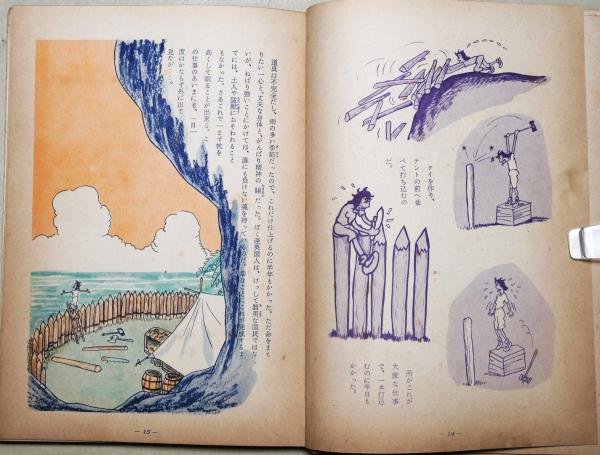 クイを作り、
テントの前へ並
べて打ち込むの
だ。
所がこれが
大変な仕事
で、一本打込
むのに半日も
かかった。
— 14 —
道具は不完全だし、雨の多い季節だったので、これだけ仕上げるのに半年もかかった。ただ命をまも
りたい一心と、丈夫な身体と、がんばり精神の賜だった。ぼく達英国人は、けっして器用な国民ではな
いが、ねばり強いことにかけては、誰にも負けない魂を持って なことにこれが完成するま
でには、土人や猛獣におそわれること
もなかった。さあこれで一まず枕を
高くして眠ることが出来る。こ
の仕事のあいまにも、一日一
度はかならず丘に出て
見たが……。
— 15 —